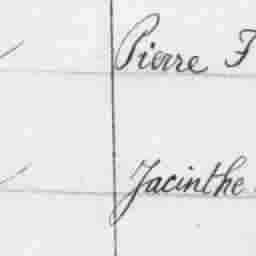 Pierre F
Jacinthe